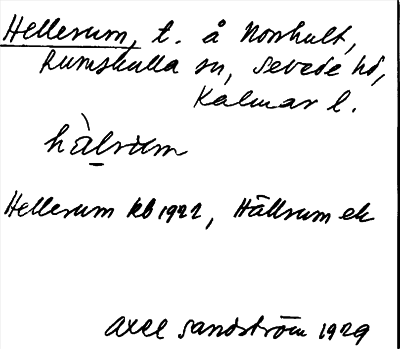 Hellerum, t. å Norrhult,
Rumskulla sn, Sevede hd,
Kalmar l.
hàlrum
Hellerum kb 1922, Hällrum ek
Axel Sandström 1929